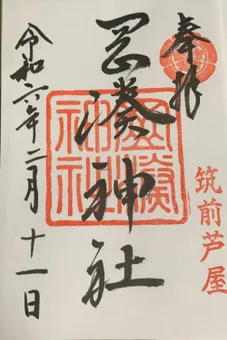 奉拝
筑前芦屋
岡湊神社
令和六年二月十一日